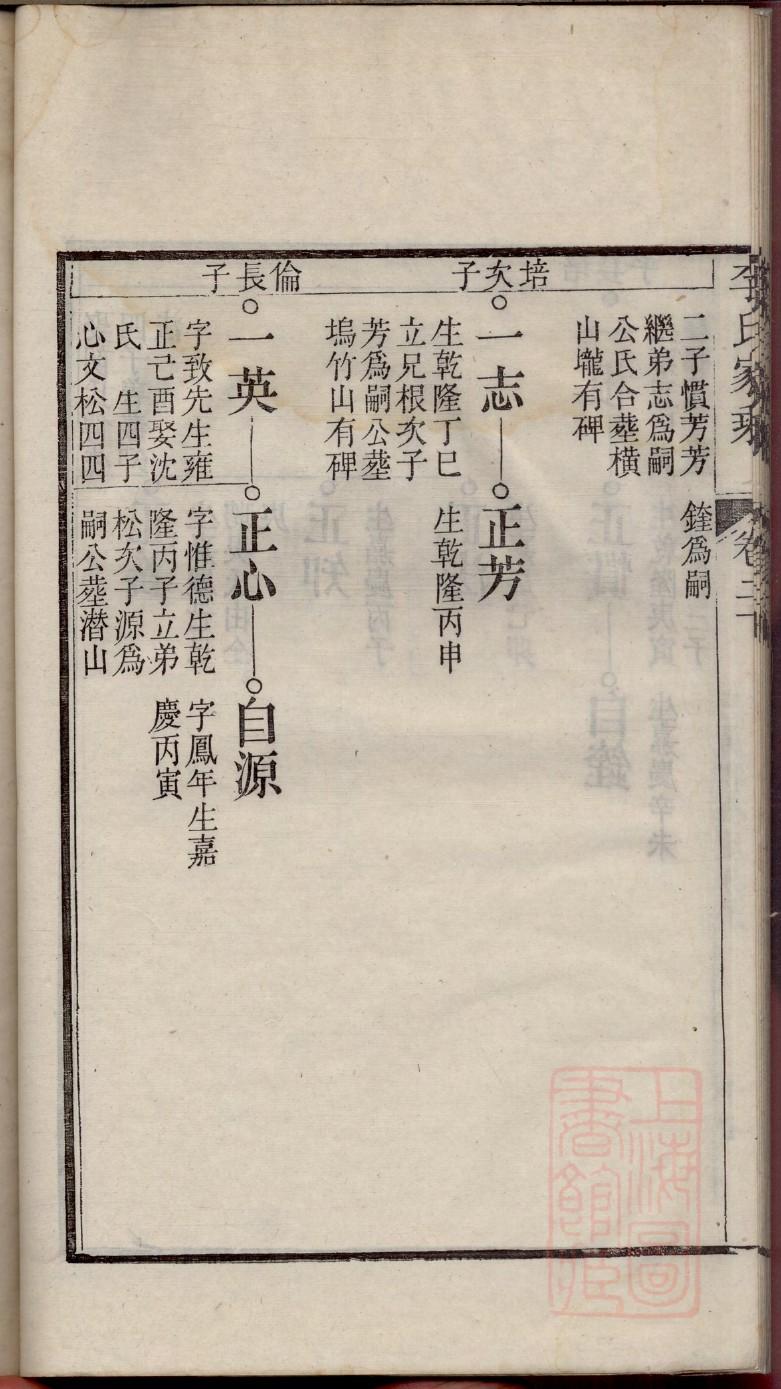 李氏家乘
卷二十
二子慣芳芳
繼弟志爲嗣
公氏合塟横
山壠有碑
鍷爲嗣
培次子
一志
生乾隆丁巳
立兄根次子
芳爲嗣公塟
塢竹山有碑
正芳
生乾隆丙申
倫長子
一英
字致先生雍
正己酉娶沈
氏　生四子
心文松四四
正心
字惟德生乾
隆丙子立弟
松次子源爲
嗣公塟潜山
自源
字鳳年生嘉
慶丙寅
上海圖
書館藏